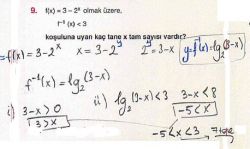 9. f(x) = 3 – 2ˣ olmak üzere,
f⁻¹(x) < 3
koşuluna uyan kaç tane x tam sayısı vardır?
f(x) = 3 - 2ˣ x = 3 - 2ʸ 2ʸ = 3 - x y = f⁻¹(x) = log₂(3-x)
f⁻¹(x) = log₂(3-x)
i) 3-x > 0 ii) log₂(3-x) < 3 3-x < 8
3 > x -5 < x
-5 < x < 3